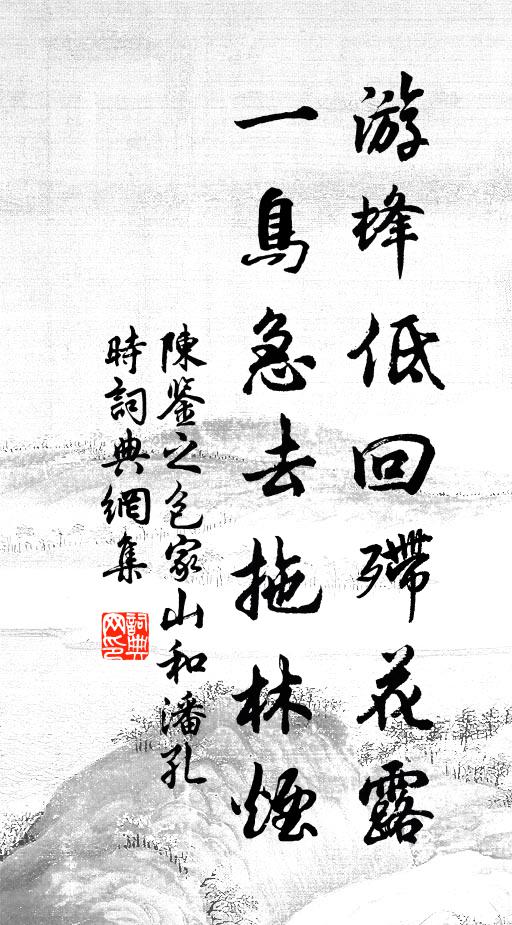 游蜂低回殢花露
一鳥急去拖林煙
陳鉴之包家山和潘孔
時詞典網集
詞典网印